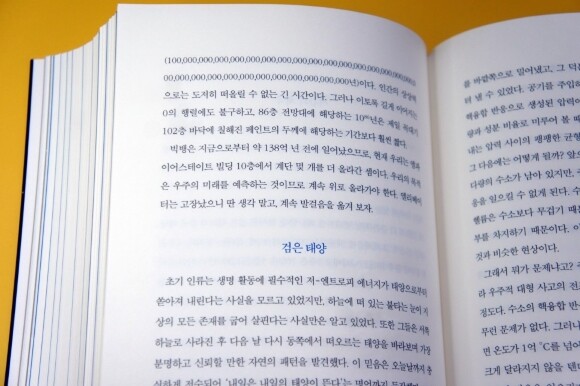 (100,000,000,000,000,000,000,000,000,000,000,000,000,000,000,000,000,0
00,000,000,000,000,000,000,000,000,000,000,000,000,000년)이다. 인간의 상상력
으로는 도저히 떠올릴 수 없는 긴 시간이다. 그러나 이토록 길게 이어지는
0의 행렬에도 불구하고, 86층 전망대에 해당하는 년은 제일 꼭대기
102층 바닥에 칠해진 페인트의 두께에 해당하는 기간보다 훨씬 짧다.
빅뱅은 지금으로부터 약 138억 년 전에 일어났으므로, 현재 우리는 엠파
이어스테이트 빌딩 10층에서 계단 몇 개를 더 올라간 셈이다. 우리의 목적
은 우주의 미래를 예측하는 것이므로 계속 위로 올라가야 한다. 엘리베이
터는 고장났으니 딴 생각 말고, 계속 발걸음을 옮겨 보자.
검은 태양
초기 인류는 생명 활동에 필수적인 저-엔트로피 에너지가 태양으로부터
쏟아져 내린다는 사실을 모르고 있었지만, 하늘에 떠 있는 불타는 눈이 지
상의 모든 존재를 굽어 살핀다는 사실만은 알고 있었다. 또한 그들은 서쪽
하늘로 사라진 후 다음 날 다시 동쪽에서 떠오르는 태양을 바라보며 가장
분명하고 신뢰할 만한 자연의 패턴을 발견했다. 이 믿음은 오늘날까지
를 바깥쪽으로 밀어냈고, 그
터 낼 수 있었다. 공기를 주입
핵융합 반응으로 생성된 압력이
량과 성분 비율로 미루어 볼 때
내는 압력 사이의 팽팽한 균형
그 다음에는 어떻게 될까?
다량의 수소가 남아 있지만,
응을 일으킬 수 없게 된다. 수
헬륨은 수소보다 무겁기 때문
부를 차지하기 때문이다.
것과 비슷한 현상이다.
그래서 뭐가 문제냐고?
라 우주적 대형 사고의 전
정도다. 수소의 핵융합 반
무런 문제가 없다. 그러나
면 온도가 1억 °C를 넘어
크게 달라지지 않을